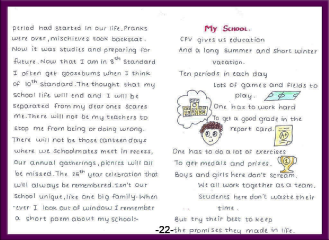 period had started in our life. Pranks
were over, mischieves took backseat.
Now it was studies and preparing for
future. Now that I am in 8th Standard
I often get goosebums when I think
of 10th Standard. The thought that my
school life will end and I will be
separated from my dear ones scares
me. There will not be my teachers to
stop me from being or doing wrong.
There will not be those canteen days
where we schoolmates meet in recess.
Our annual gatherings, picnics will all
be missed. The 25th year celebration that
will always be remembered. Isn't our
School unique, like one big family. When
ever I look out of window I remember
a short poem about my school-
My School.
CPV gives us education
And a long summer and short winter
vacation.
Ten periods in each day
Lots of games and fields to
play.
One has to work hard
To get a good grade in the
report card.
One has to do a lot of exercises
To get medals and prizes.
Boys and girls here don't scream.
We all work together as a team.
Students here don't waste their
time.
But try their best to keep
the promises they made in life.
-22-